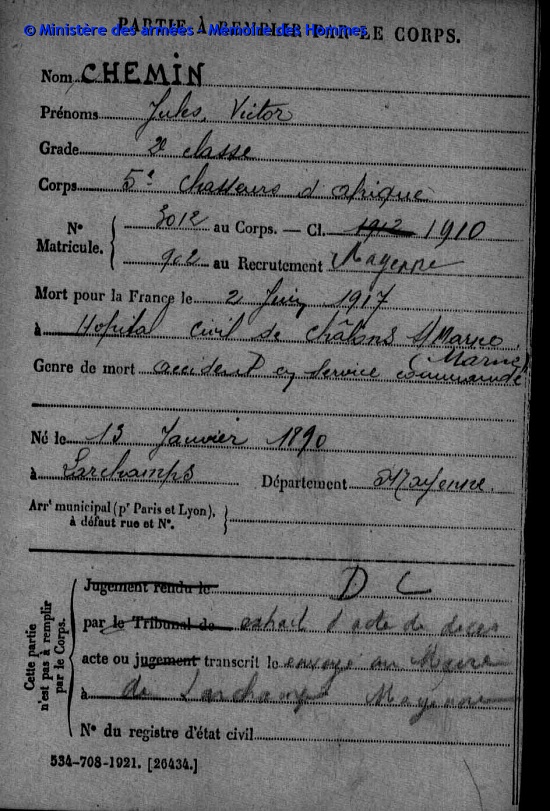 © Ministère des armées - Mémoire des Hommes
PARTIE À REMPLIR PAR LE CORPS.
Nom CHEMIN
Prénoms Jules, Victor
Grade 2e classe
Corps 5e Chasseurs d'afrique
N° Matricule. { 3012 au Corps. — Cl. 1912 1910
902 au Recrutement Mayenne
Mort pour la France le 2 Juin 1917
à Hopital civil de Châlons s/Marne
(Marne)
Genre de mort accident en service commandé
Né le 13 Janvier 1890
à Larchamps Département Mayenne.
Arrt municipal (pr Paris et Lyon), à défaut rue et N°. }
Cette partie n'est pas à remplir par le Corps.
Jugement rendu le D C
par le Tribunal de extrait d'acte de décès
acte ou jugement transcrit le envoyé au Maire
à de Larchamps Mayenne
N° du registre d'état civil
534-708-1921. [26434.]